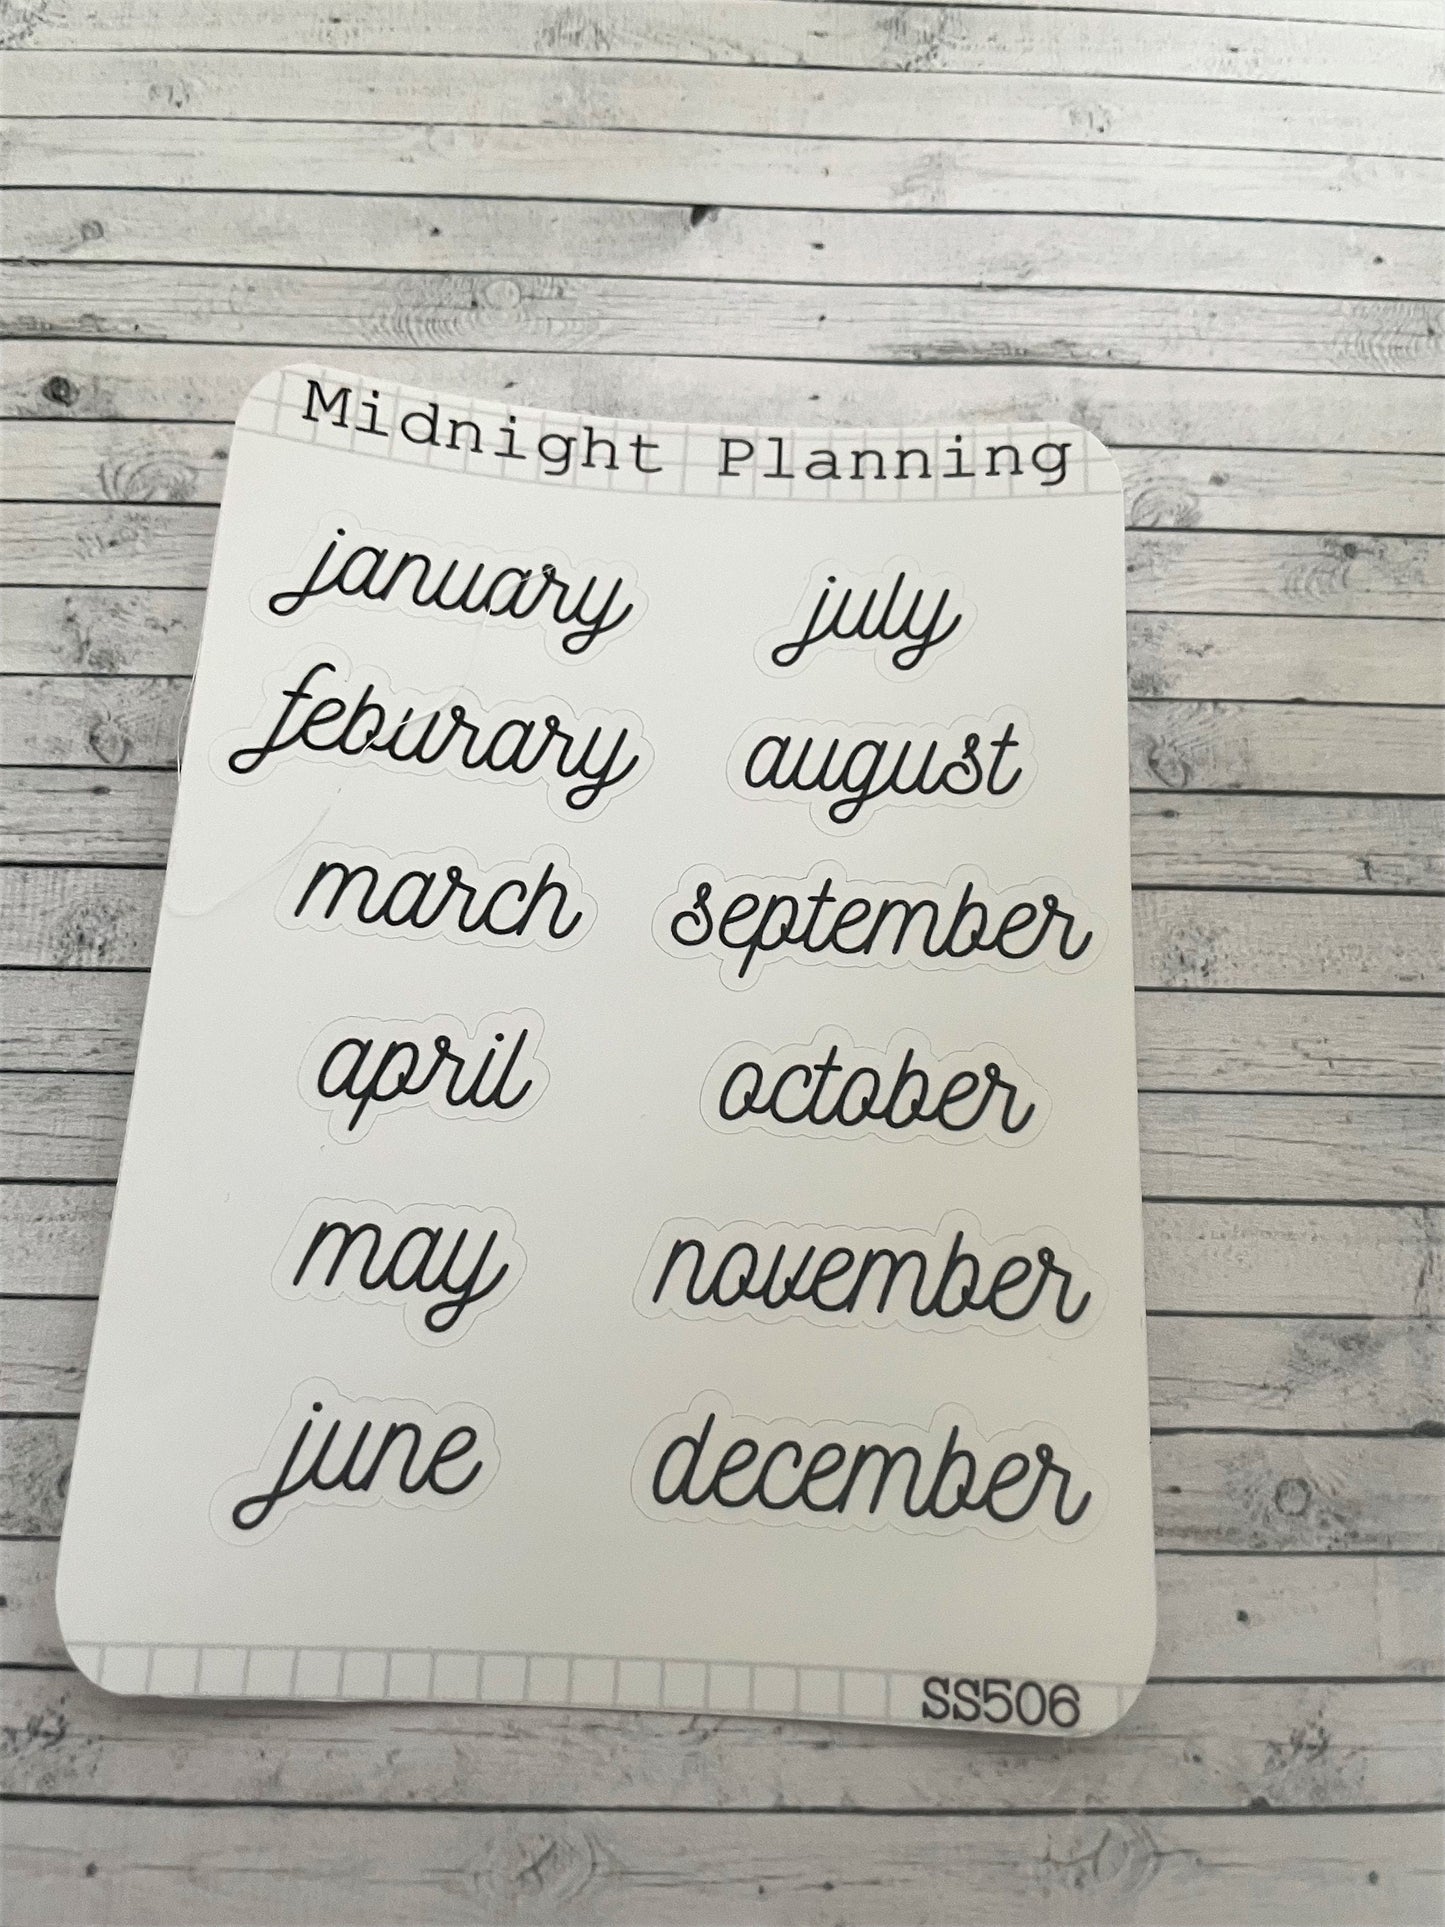 Midnight Planning
january
feburary
march
april
may
june
july
august
september
october
november
december
SS506